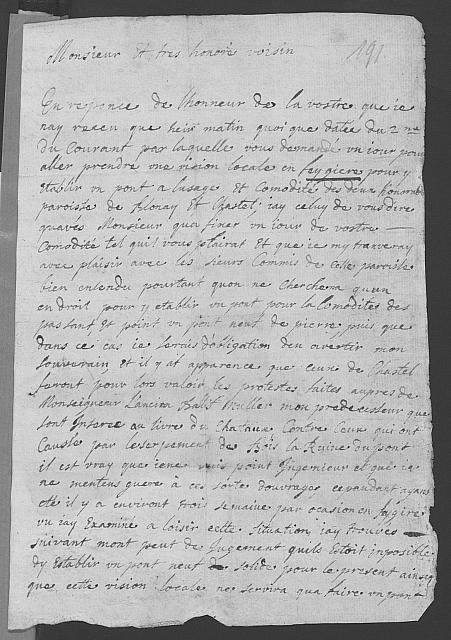 Monsieur et tres honoré voisin
191
En reponce de lhonneur de la vostre que ie
nay receu que heir matin quoi que datée du 2 me
du Courant par laquelle vous demandé vn iour pour
aller prendre vne vision locale en feygiere pour y
establir vn pont a lusage et Comodité des deux honorab
paroisse de Blonay et Chastel; iay celuy de vous dire
quaves Monsieur qua finer vn iour de vostre
Comodité tel quil vous plairat et que ie my trauveray
avec plaisir avec les sieurs Commis de cette paroisse
bien entendu pourtant quon ne Cherchera quun
endroit pour y etablir vn pont pour la Comodité des
passant, et point vn pont neuf de pierre puis que
dans ce cas ie serais dobligation den avertir mon
souverain, et il y at apparence que ceux de Chastel
feront pour lors valoir les protestes faites aupres de
Monseigneur Lancien Ballif Muller mon predecesseur que
sont Inseree au livre du Chataux Contre Ceux qui ont
Causse par leserpement de Bois la Ruine du pont
il est vray que iene suis point Ingenieur et que ie
ne mentens guere à ces sorte douvrage, cepandant ayans
eté il y a environt trois semaine par ocasion en feygire
vu iay Examiné a loisir cette situation, iay trouvés
suivant mont peut de Jugement quils Estoit inposible
dy Establir vn pont neuf de solide pour le present ainsy
que cette vision locale ne servira qua faire vn pont